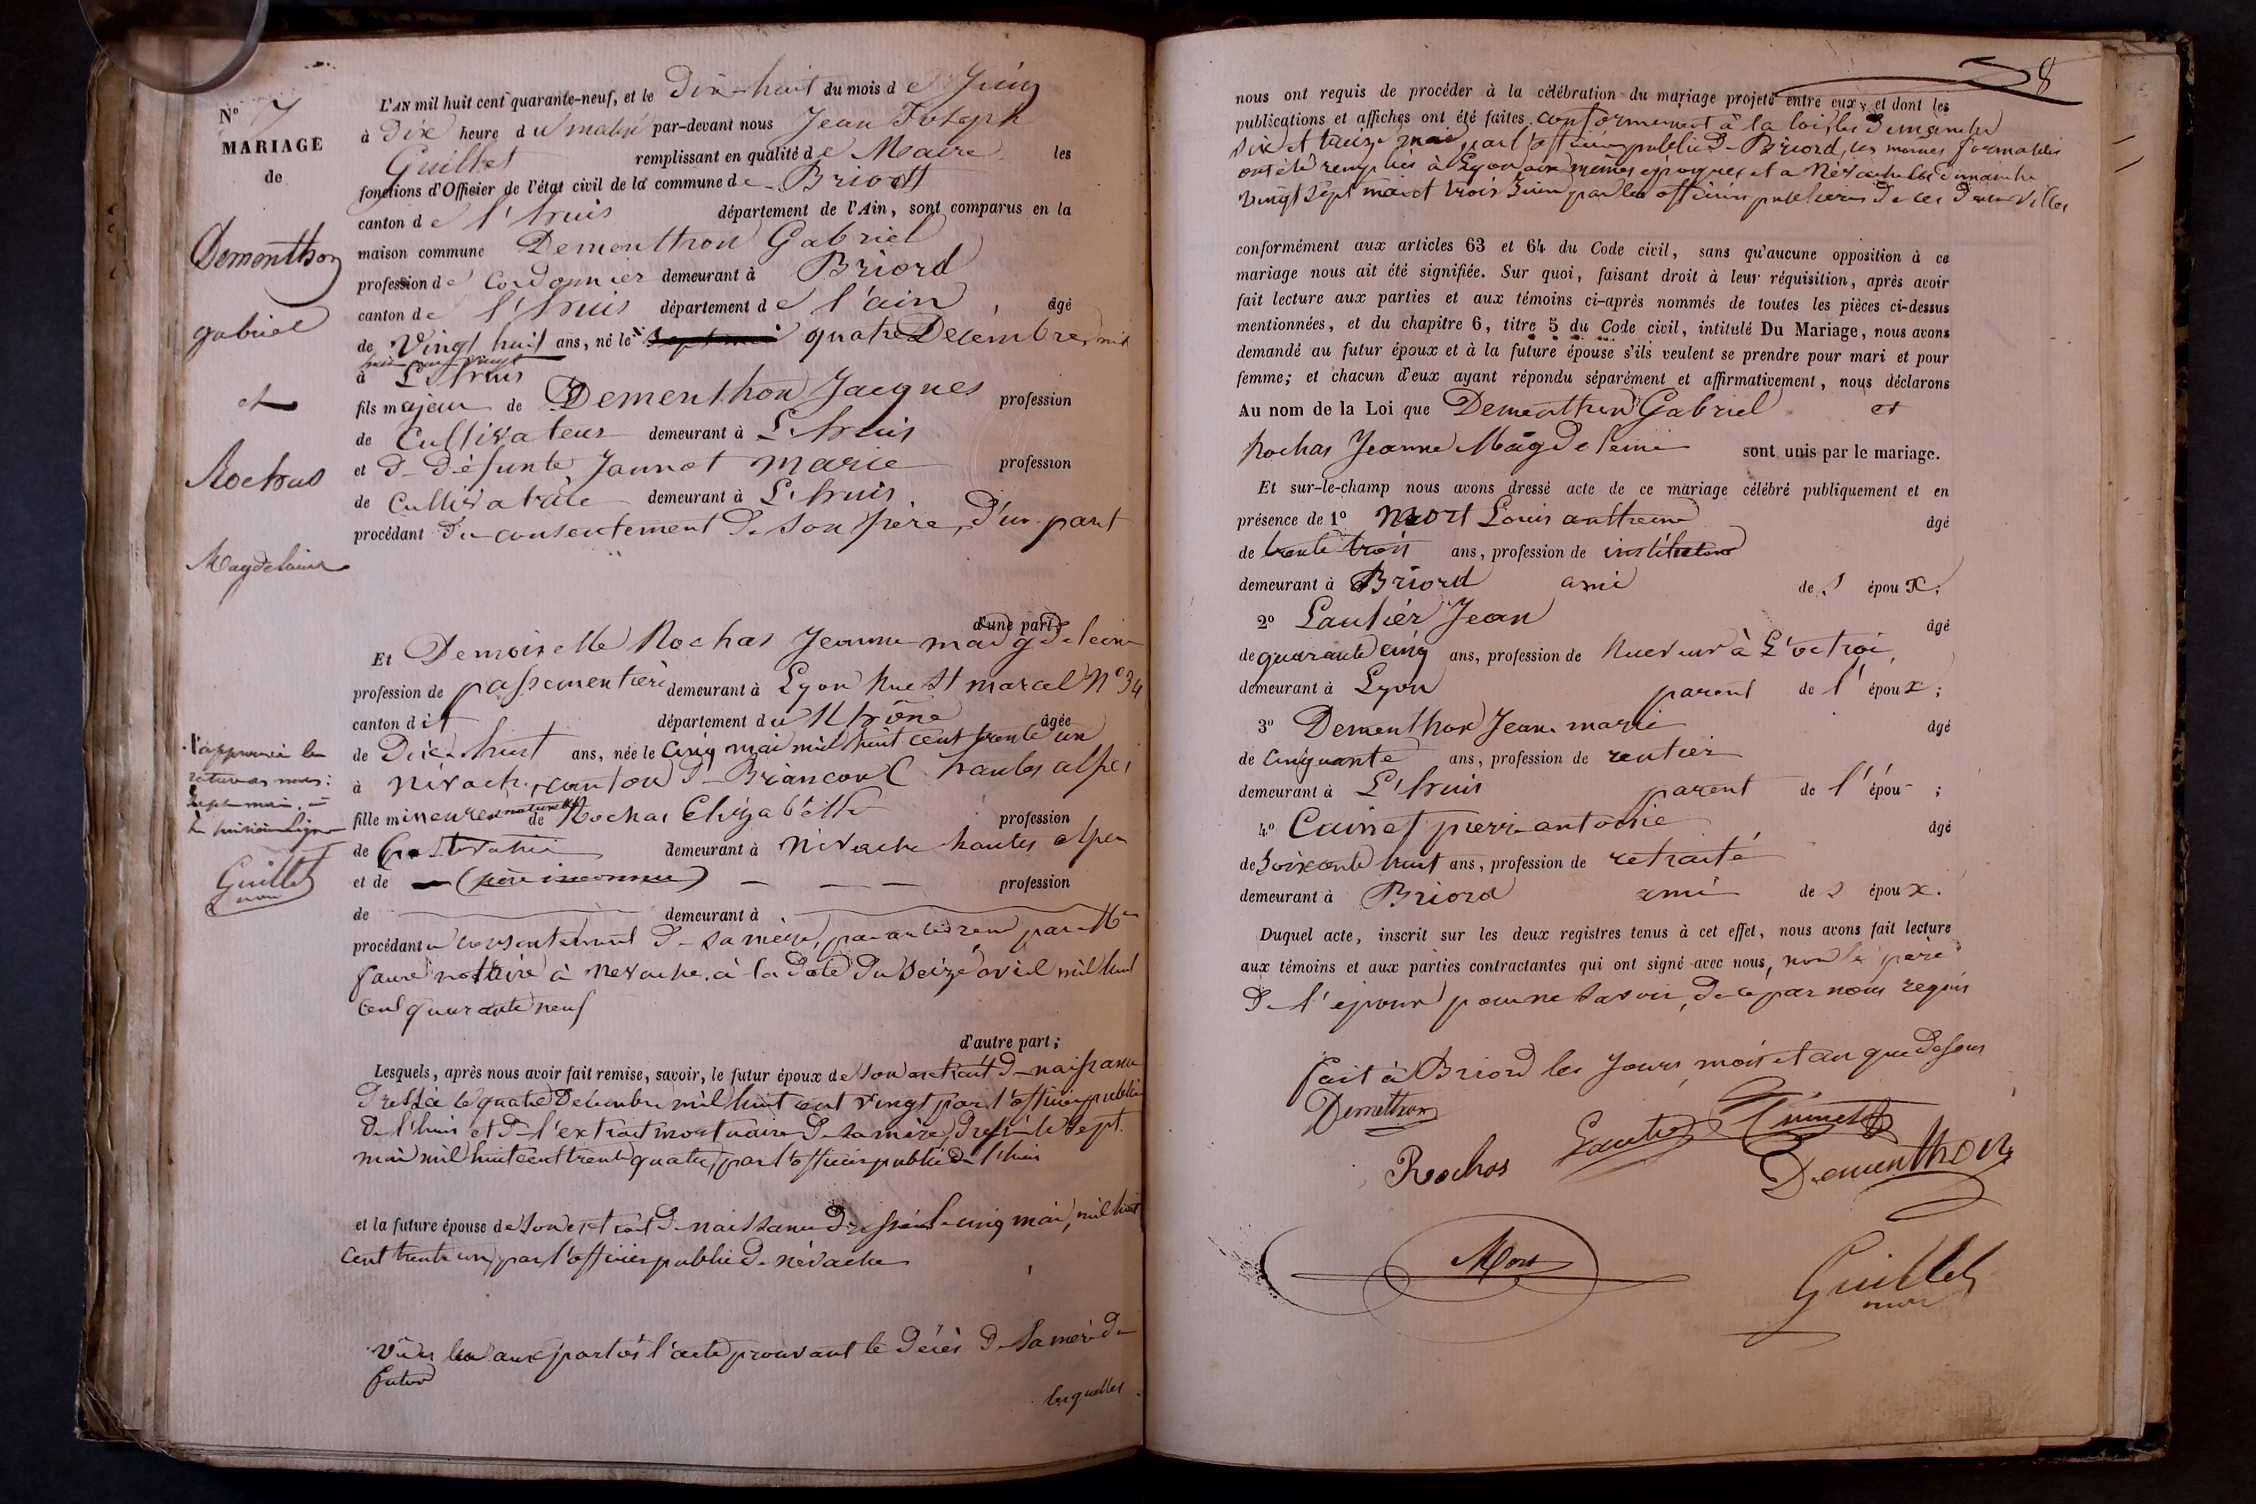 8
N° 7
MARIAGE
de
Dementhon
gabriel
et
Rochas
Magdelaine
J'approuve la
rature des mots:
sept mai, à
la huitième ligne
Guillet
L'AN mil huit cent quarante-neuf, et le Dix-huit du mois de Juin
à Dix heure du matin par-devant nous Jean Joseph
Guillet remplissant en qualité de Maire les
fonctions d'Officier de l'état civil de la commune de Briord
canton de l'huis département de l'Ain, sont comparus en la
maison commune Dementhon Gabriel
profession de Cordonnier demeurant à Briord
canton de l'huis département de l'ain, âgé
de Vingt huit ans, né le sept mai quatre Décembre mil
huit cent vingt
à L'huis
fils majeur de Dementhon Jacques profession
de Cultivateur demeurant à L'huis
et de défunte Jannet marie profession
de Cultivatrice demeurant à L'huis.
procédant du consentement de son père, d'un part
d'une part;
Et Demoiselle Rochas Jeanne magdeleine
profession de passementière demeurant à Lyon Rue St marcel N° 34
canton dit département du Rhône âgée
de Dix-huit ans, née le cinq mai mil huit cent trente un
à névache, canton de Briancon hautes alpes
fille mineure naturelle de Rochas Elizabeth profession
de demeurant à Névache hautes alpes
et de (père inconnu) profession
de demeurant à
procédant du consentement de sa mère, par acte reçu par Me
faure notaire à Nevache, à la date du seize avril mil huit
cent quarante neuf
d'autre part;
Lesquels, après nous avoir fait remise, savoir, le futur époux de son extrait de naissance
dressé le quatre Décembre mil huit cent vingt par l'officier public
de l'huis et de l'extrait mortuaire de sa mère, dressé le sept
mai mil huit cent trente quatre, par l'officier public de l'huis
et la future épouse de son extrait de naissance dressé le cinq mai, mil huit
cent trente un, par l'officier public de névache
vu et lu aux parties l'acte prouvant le décès de la mère du
futur
lesquelles
nous ont requis de procéder à la célébration du mariage projeté entre eux, et dont les
publications et affiches ont été faites conformement à la loi, les Dimanches
six et treize mai, par l'officier public de Briord, les mêmes formalités
ont été remplies à Lyon aux mêmes époques et a Névache les dimanche
vingt sept mai et trois Juin par les officiers publics de ces deux villes
conformément aux articles 63 et 64 du Code civil, sans qu'aucune opposition à ce
mariage nous ait été signifiée. Sur quoi, faisant droit à leur réquisition, après avoir
fait lecture aux parties et aux témoins ci-après nommés de toutes les pièces ci-dessus
mentionnées, et du chapitre 6, titre 5 du Code civil, intitulé Du Mariage, nous avons
demandé au futur époux et à la future épouse s'ils veulent se prendre pour mari et pour
femme; et chacun d'eux ayant répondu séparément et affirmativement, nous déclarons
Au nom de la Loi que Dementhon Gabriel et
Rochas Jeanne Magdeleine sont unis par le mariage.
Et sur-le-champ nous avons dressé acte de ce mariage célébré publiquement et en
présence de 1° Mort Louis anthelme âgé
de trente trois ans, profession de instituteur
demeurant à Briord ami de l' époux;
2° Lautier Jean âgé
de quarante cinq ans, profession de Receveur à L'octroi,
demeurant à Lyon parent de l' époux;
3° Dementhon Jean marie âgé
de Cinquante ans, profession de rentier
demeurant à L'huis parent de l' épou ;
4° Cuinet pierre antoine âgé
de Soixante huit ans, profession de retraité
demeurant à Briord ami de l' époux.
Duquel acte, inscrit sur les deux registres tenus à cet effet, nous avons fait lecture
aux témoins et aux parties contractantes qui ont signé avec nous, non le père
de l'époux pour ne savoir, de ce par nous requis
fait à Briord les Jours, mois et an que dessus
Dementhon
Lautier Cuinet
Rochas Dementhon
Mort
Guillet